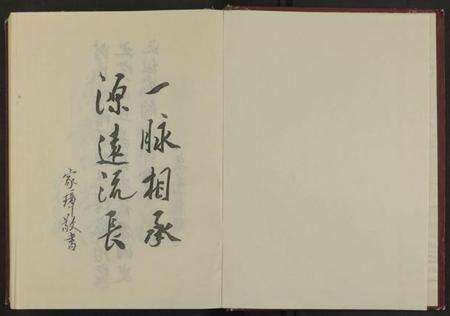 一脉相承
源遠流長
家璋敬書